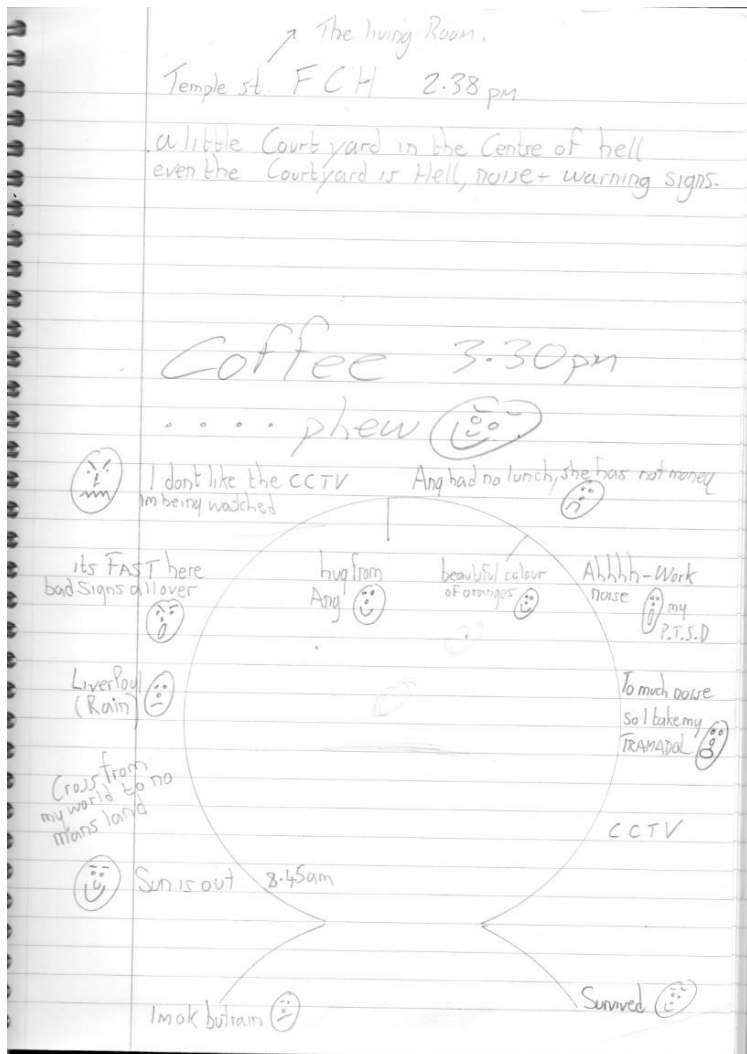 The living Room.
Temple st. FCH 2.38 pm
a little Courtyard in the Centre of hell
even the Courtyard is Hell, noise + warning signs.
Coffee 3.30pm
..... phew
I dont like the CCTV
Im being watched
Ang had no lunch, she has not money
its FAST here
bad Signs all over
hug from
Ang
beautiful colour
of oranges
Ahhhh-Work
noise
my
P.T.S.D
Liverpool
(Rain)
To much noise
so I take my
TRAMADOL
Cross from
my world to no
mans land
CCTV
Sun is out 8.45am
Im ok but rain
Survived